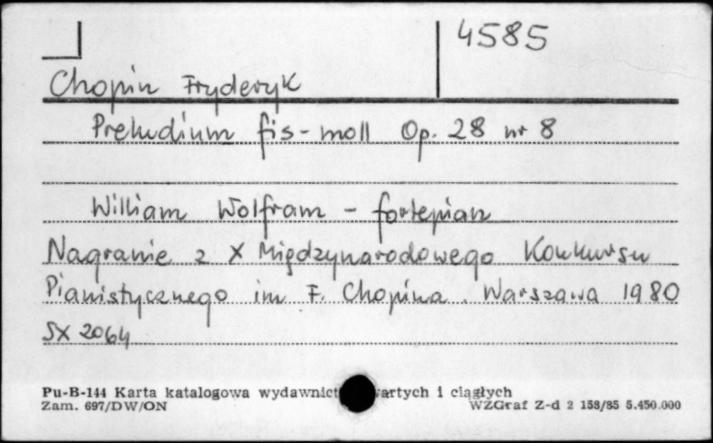 4585
Chopin Fryderyk
Preludium fis-moll Op. 28 nr 8
William Wolfram - fortepian
Nagranie z X Międzynarodowego Konkursu
Pianistycznego im F. Chopina. Warszawa 1980
SX 2064
Pu-B-144 Karta katalogowa wydawnict artych i ciągłych
Zam. 697/DW/ON WZGraf Z-d 2 158/85 5.450.000